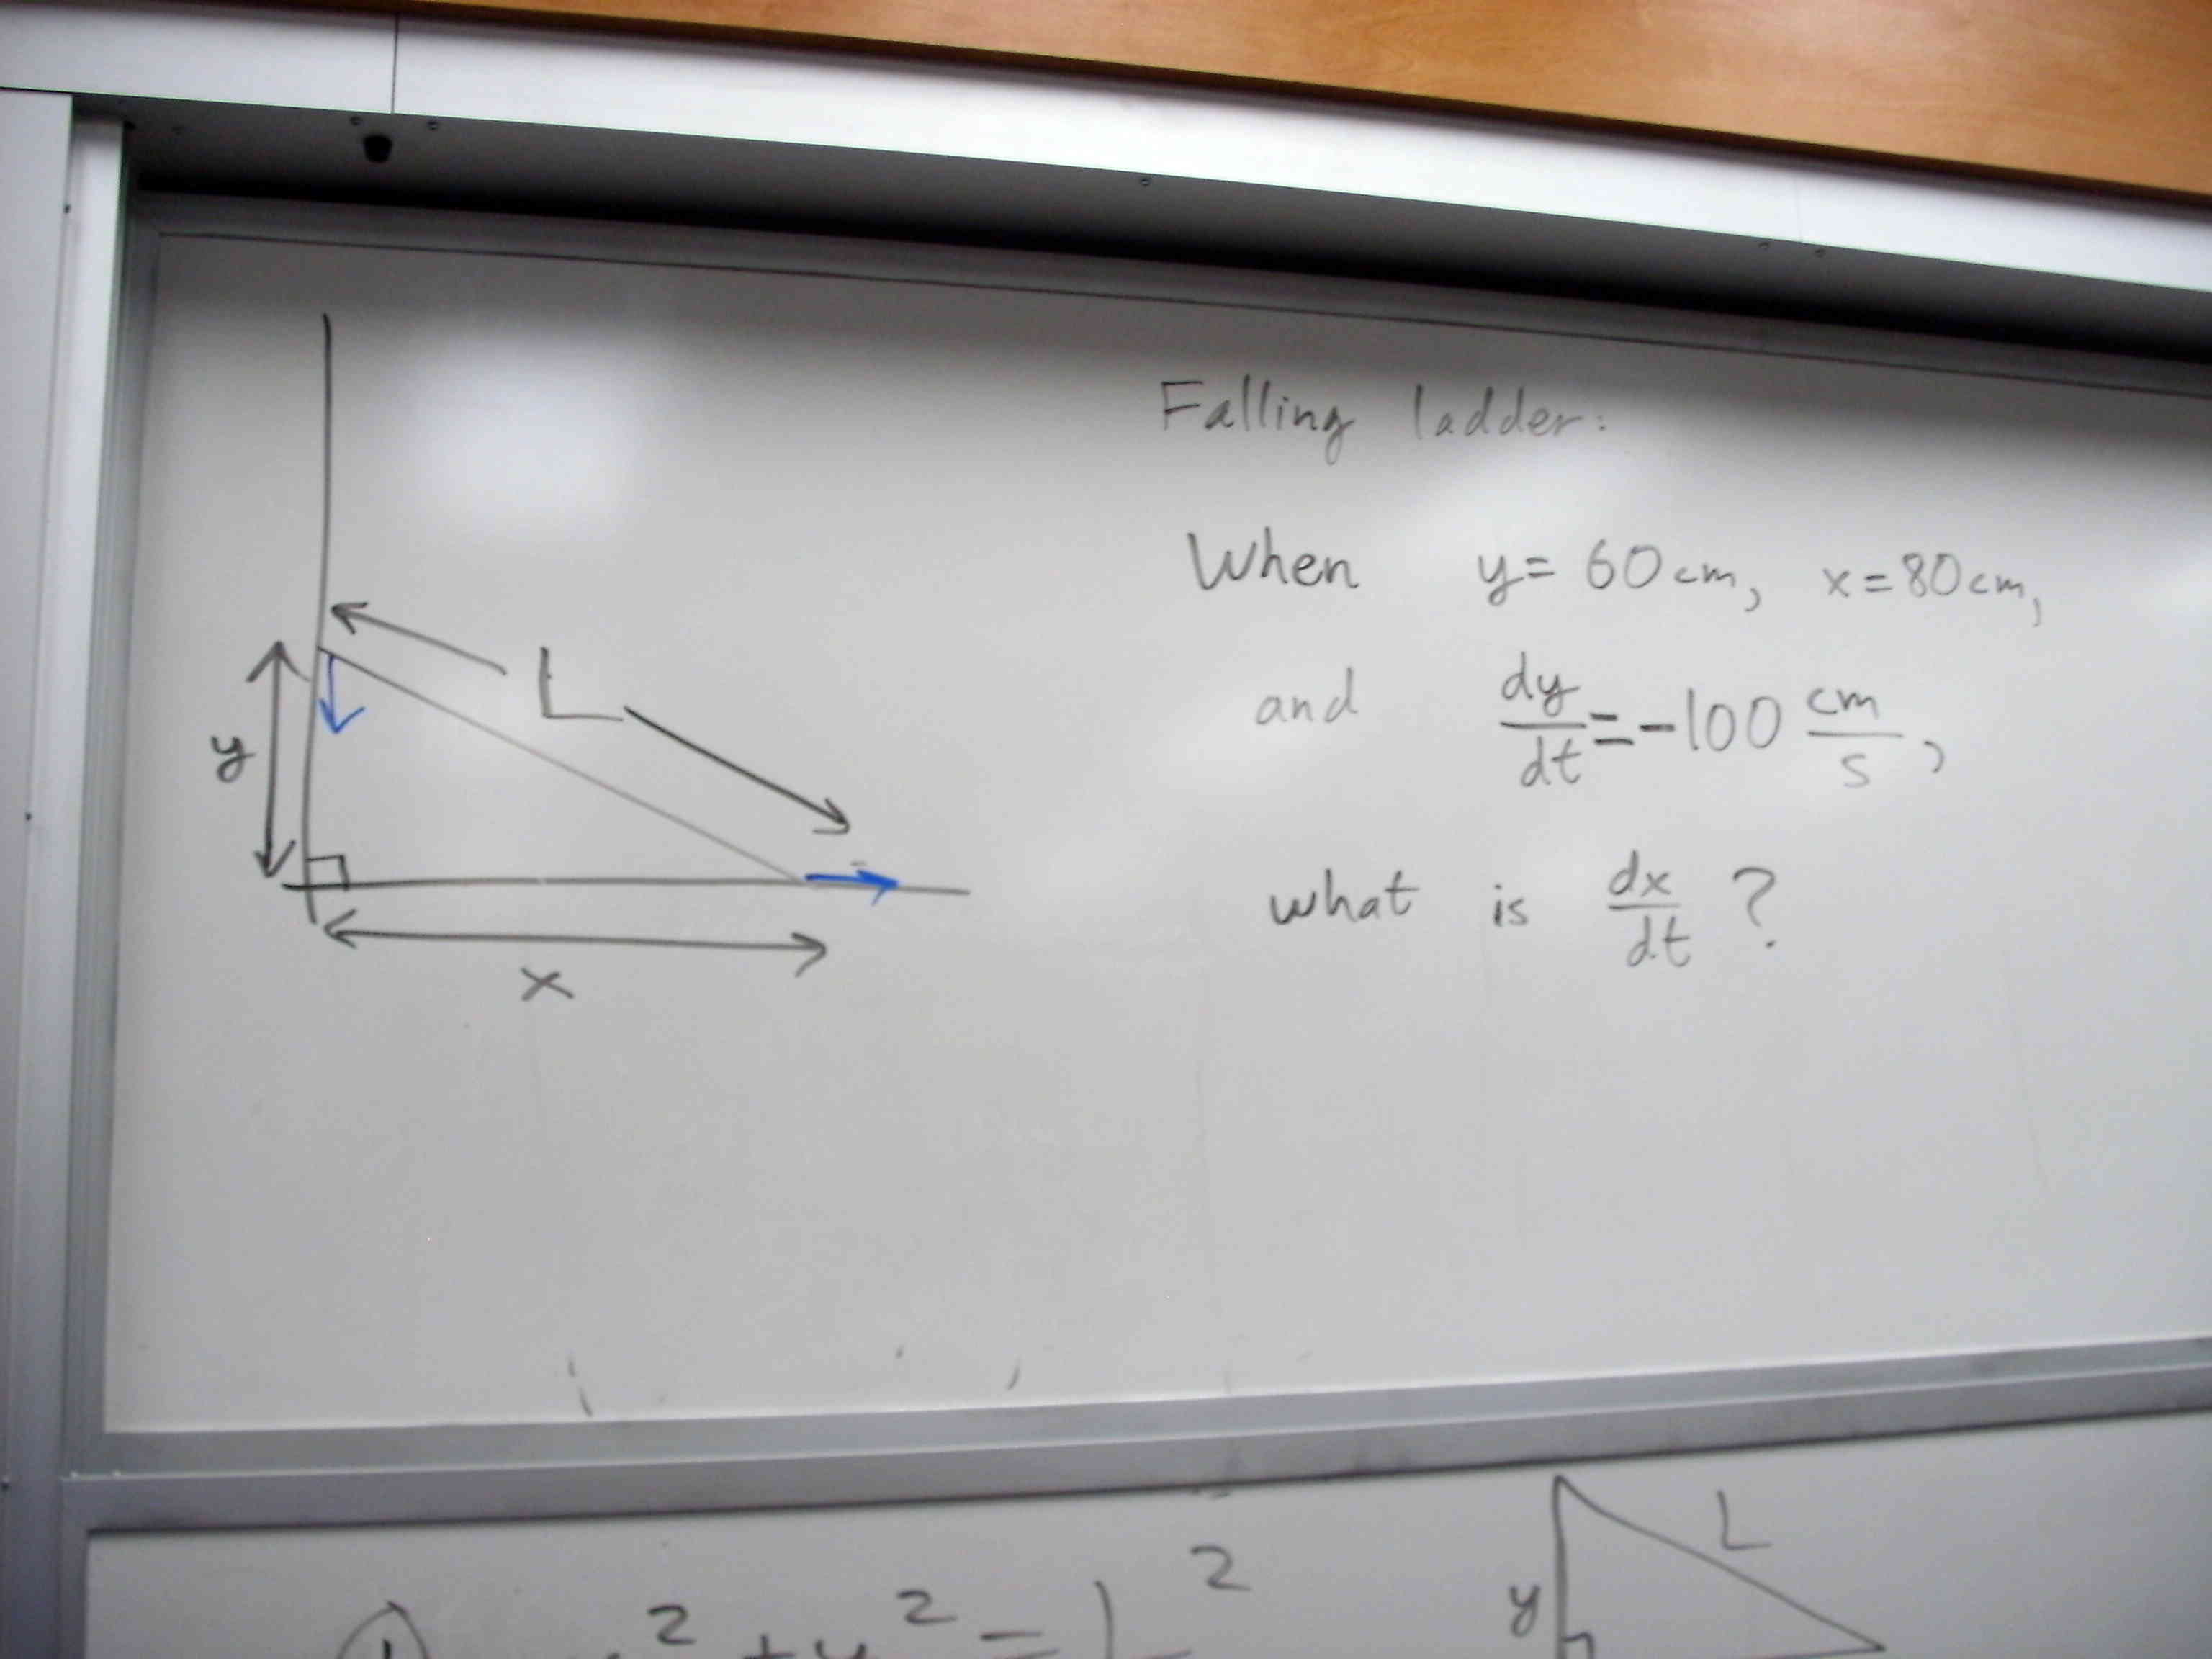 Falling ladder:
When y = 60 cm, x = 80 cm,
and dy/dt = -100 cm/s,
what is dx/dt ?
L
y
x
L
2 + y2 = L2
y